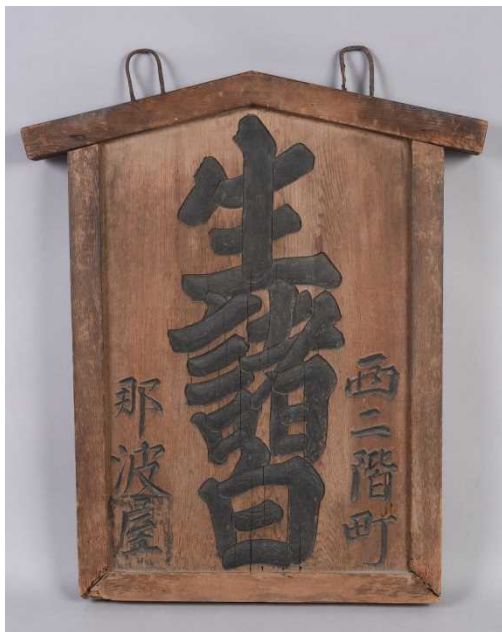 西二階町
生諸白
那波屋